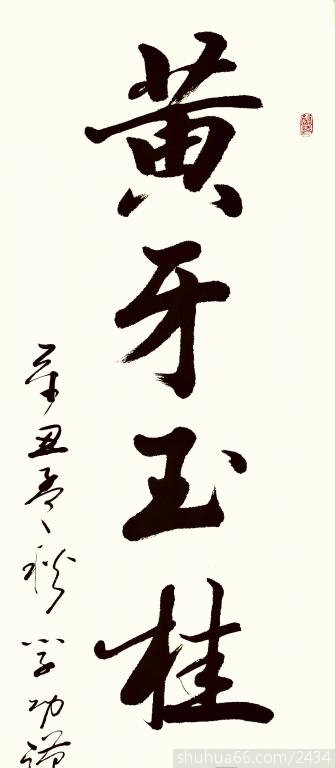 黄牙玉桂
辛丑孟秋学功
shuhua66.com/2434